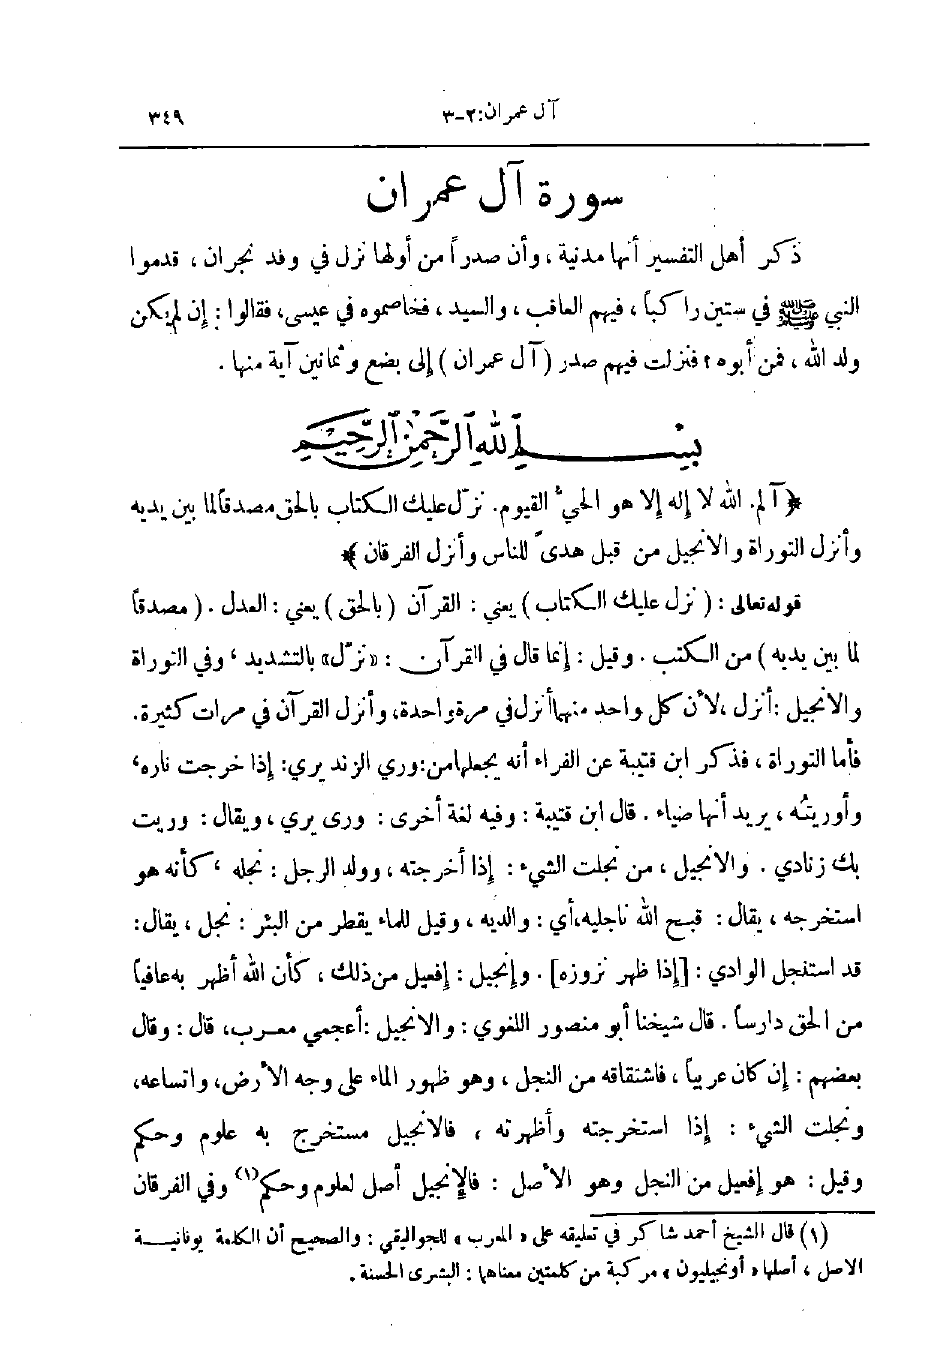 آل عمران:٢-٣
٣٤٩
سورة آل عمران
ذكر أهل التفسير أنها مدنية ، وأن صدراً من أولها نزل في وفد نجران ، قدموا
النبي ﷺ في ستين راكباً ، فيهم العاقب ، والسيد ، فخاصموه في عيسى، فقالوا : إن لم يكن
ولد الله ، فمن أبوه ؟ فنزلت فيهم صدر (آل عمران ) إلى بضع وثمانين آية منها .
بسم الله الرحمن الرحيم
﴿آلم. الله لا إله إلا هو الحيُّ القيوم. نزّل عليك الكتاب بالحق مصدقاً لما بين يديه
وأنزل التوراة والانجيل من قبل هدىً للناس وأنزل الفرقان ﴾
قوله تعالى : ( نزل عليك الكتاب ) يعني : القرآن ( بالحق ) يعني : العدل . ( مصدقاً
لما بين يديه ) من الكتب . وقيل : إنما قال في القرآن : «نزّل» بالتشديد ، وفي التوراة
والانجيل : أنزل ، لأن كل واحد منهما أنزل في مرة واحدة، وأنزل القرآن في مرات كثيرة.
فأما التوراة ، فذكر ابن قتيبة عن الفراء أنه يجعلها من: وري الزند يري: إذا خرجت ناره ،
وأوريتُه ، يريد أنها ضياء . قال ابن قتيبة : وفيه لغة أخرى : ورى يري ، ويقال : وريت
بك زنادي . والانجيل ، من نجلت الشيء : إذا أخرجته ، وولد الرجل : نجله ، كأنه هو
استخرجه ، يقال : قبح الله ناجليه، أي : والديه ، وقيل للماء يقطر من البئر : نجل ، يقال:
قد استنجل الوادي : [إذا ظهر نزوزه] . وإنجيل : إفعيل من ذلك ، كأن الله أظهر به عافياً
من الحق دارساً . قال شيخنا أبو منصور اللغوي : والانجيل : أعجمي معرب، قال : وقال
بعضهم : إن كان عربياً ، فاشتقاقه من النجل ، وهو ظهور الماء على وجه الأرض، واتساعه،
ونجلت الشيء : إذا استخرجته وأظهرته ، فالانجيل مستخرج به علوم وحكم
وقيل : هو إفعيل من النجل وهو الأصل : فالإنجيل أصل لعلوم وحكم(١) وفي الفرقان
(١) قال الشيخ أحمد شاكر في تعليقه على « المعرب » للجواليقي : والصحيح أن الكلمة يونانية
الاصل ، أصلها « أونجيليون » مركبة من كلمتين معناها : البشرى الحسنة .